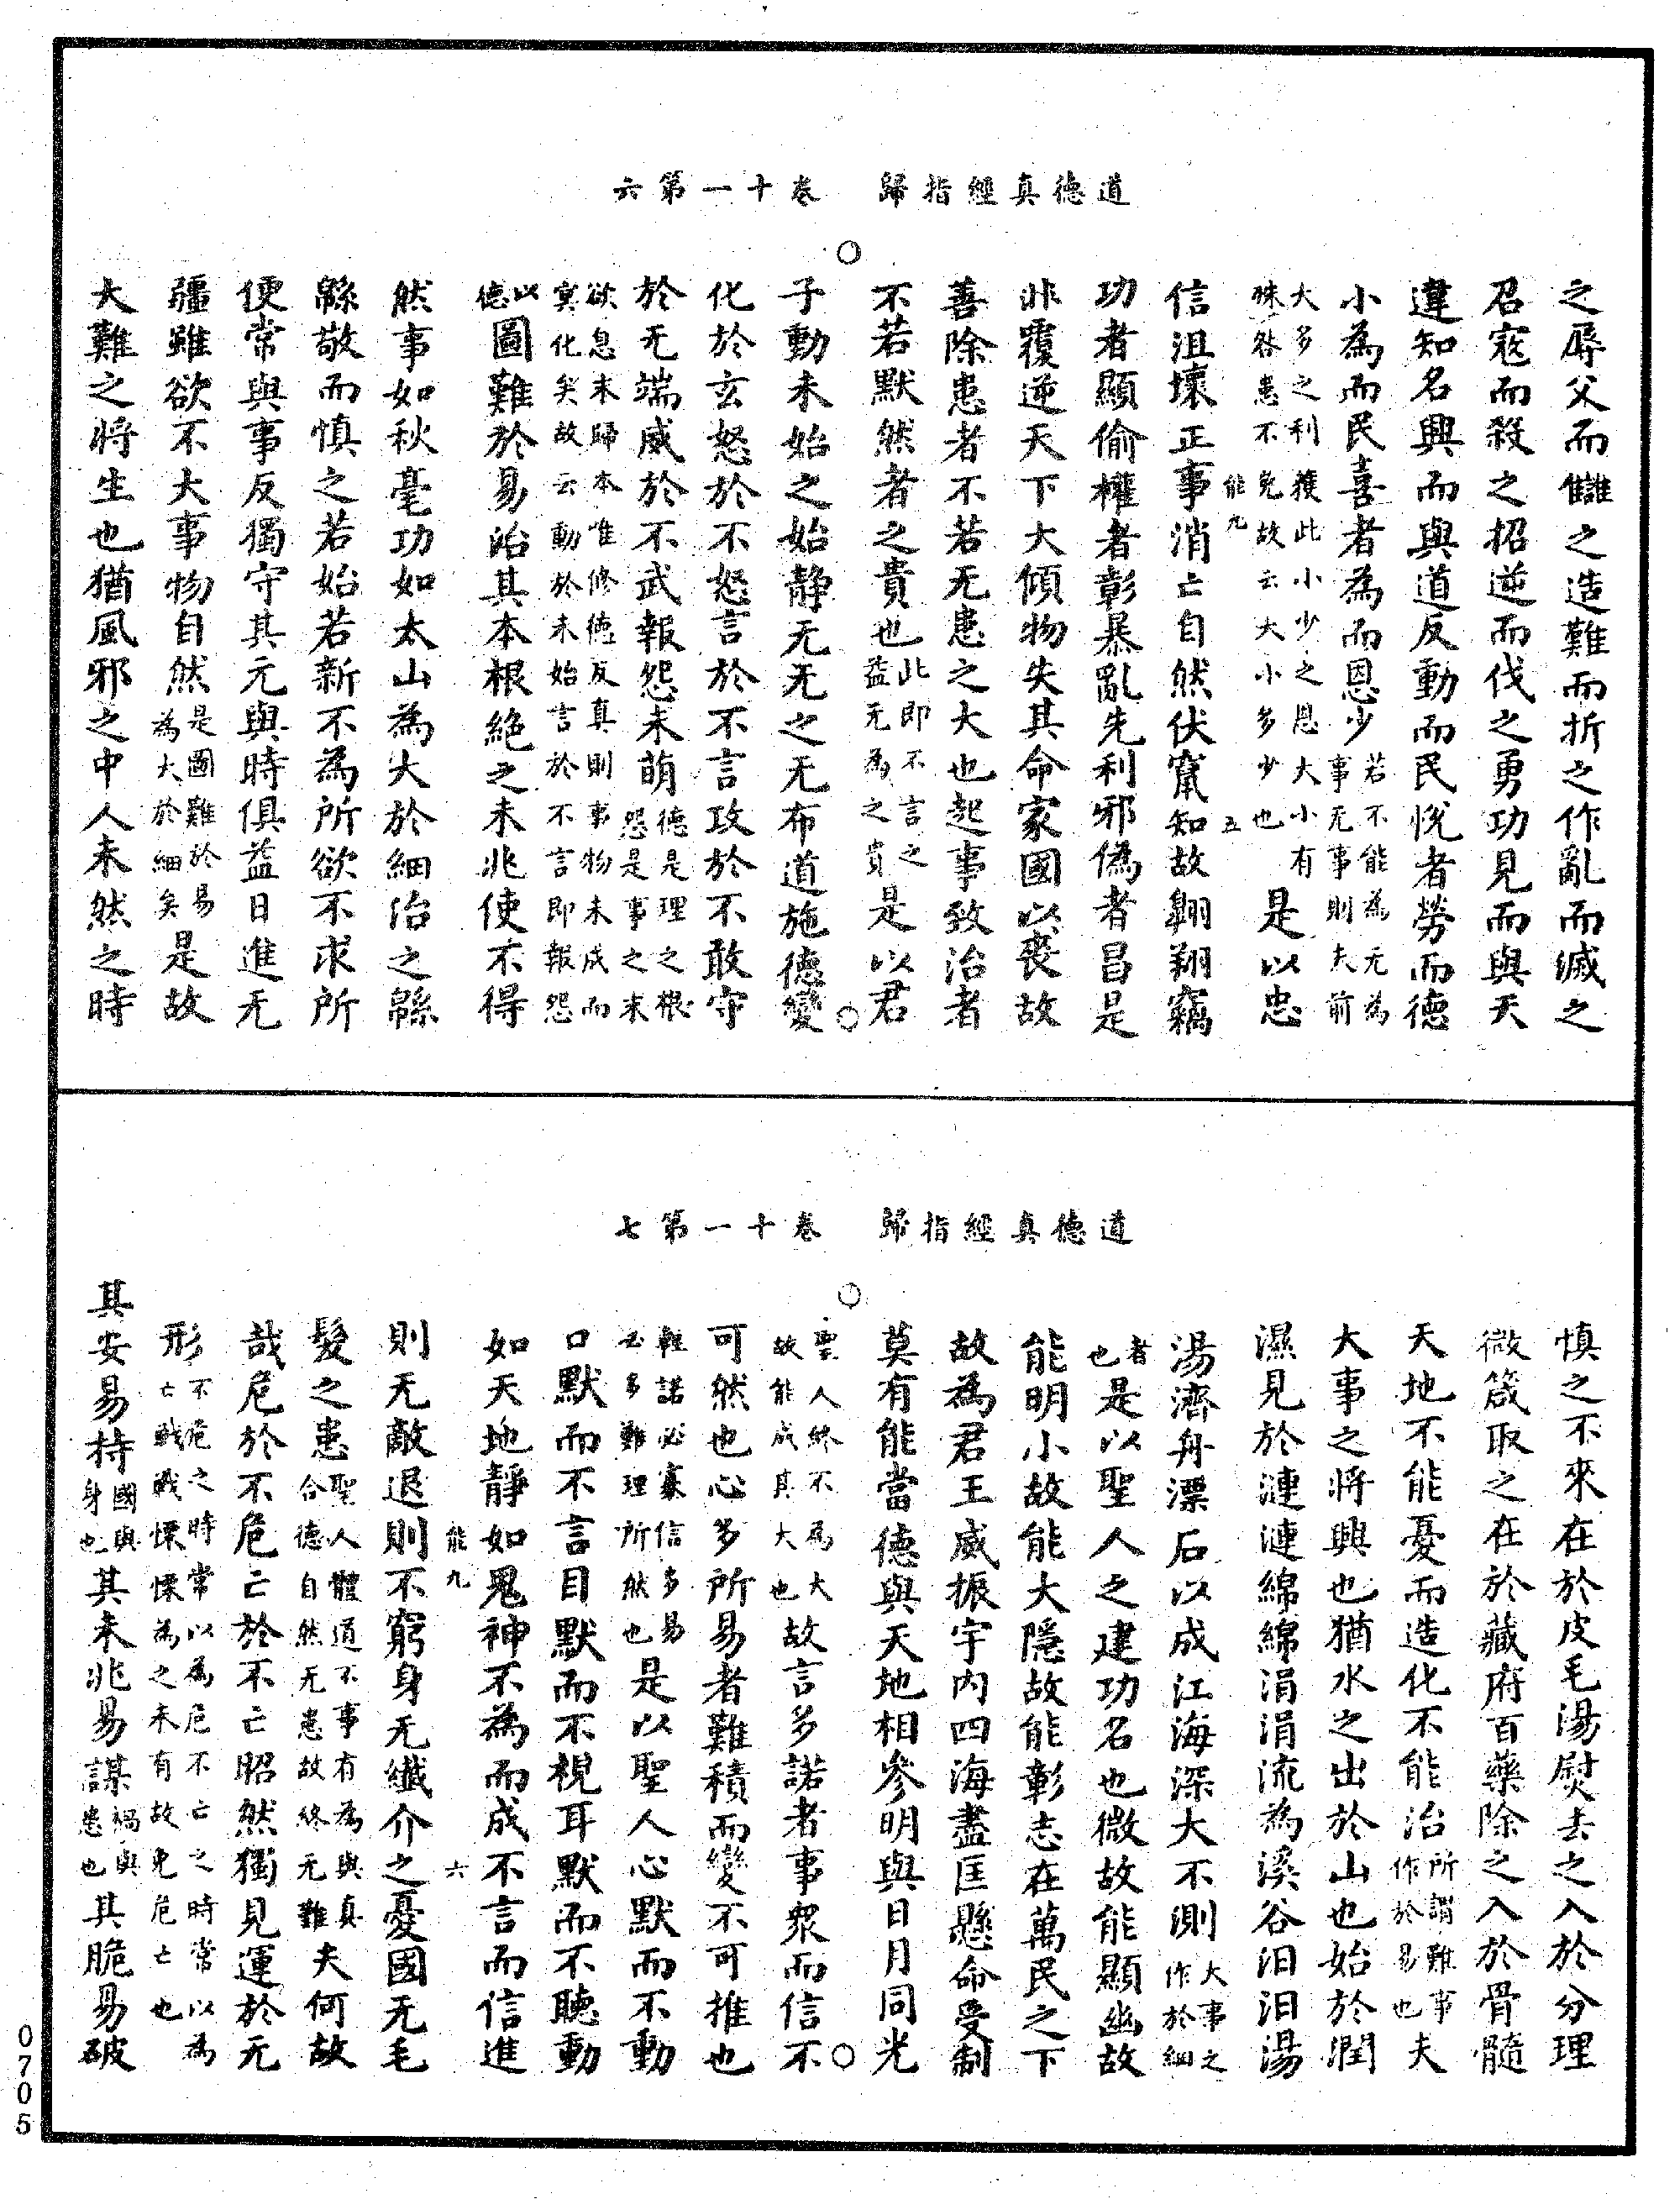 道德真經指歸　卷十一第六
之辱父而讎之造難而折之作亂而滅之
召寇而殺之招逆而伐之勇功見而與天
違知名興而與道反動而民悅者勞而德
小為而民喜者為而恩少若不能為无為事无事則夫前
大多之利獲此小少之恩大小有殊咎患不免故云大小多少也是以忠
能九　五
信沮壞正事消亡自然伏竄知故翱翔竊
功者顯偷權者彰暴亂先利邪偽者昌是
非覆逆天下大傾物失其命家國以喪故
善除患者不若无患之大也起事致治者
不若默然者之貴也此即不言之益无為之貴是以君
子動未始之始靜无无之无布道施德變
化於玄怒於不怒言於不言攻於不敢守
於无端威於不武報怨未萌德是理之根怨是事之末
欲息末歸本唯修德反真則事物未成而冥化矣故云動於未始言於不言即報怨
以德圖難於易治其本根絕之未兆使不得
然事如秋毫功如太山為大於細治之緜
緜敬而慎之若始若新不為所欲不求所
便常與事反獨守其元與時俱益日進无
疆雖欲不大事物自然是圖難於易為大於細矣是故
大難之將生也猶風邪之中人未然之時
道德真經指歸　卷十一第七
慎之不來在於皮毛湯熨去之入於分理
微箴取之在於藏府百藥除之入於骨髓
天地不能憂而造化不能治所謂難事作於易也夫
大事之將興也猶水之出於山也始於潤
濕見於漣漣綿綿涓涓流為溪谷汩汩湯
湯濟舟漂石以成江海深大不測大事之作於細
者也是以聖人之建功名也微故能顯幽故
能明小故能大隱故能彰志在萬民之下
故為君王威振宇內四海盡匡懸命受制
莫有能當德與天地相參明與日月同光
聖人終不為大故能成其大也故言多諾者事眾而信不
可然也心多所易者難積而變不可推也
輕諾必寡信多易必多難理所然也是以聖人心默而不動
口默而不言目默而不視耳默而不聽動
如天地靜如鬼神不為而成不言而信進
能九　六
則无敵退則不窮身无纖介之憂國无毛
髮之患聖人體道不事有為與真合德自然无患故終无難夫何故
哉危於不危亡於不亡昭然獨見運於无
形不危之時常以為危不亡之時常以為亡戰戰慄慄為之未有故免危亡也
其安易持國與身也其未兆易謀禍與患也其脆易破
0705